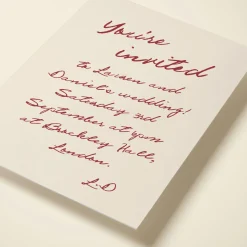 You're
invited
to Lauren and
Daniel's wedding!
Saturday 3rd
September at 4pm
at Brockley Hall,
London.
L&D